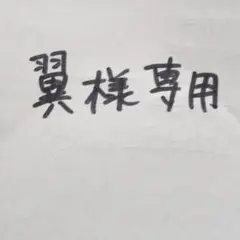 翼様専用